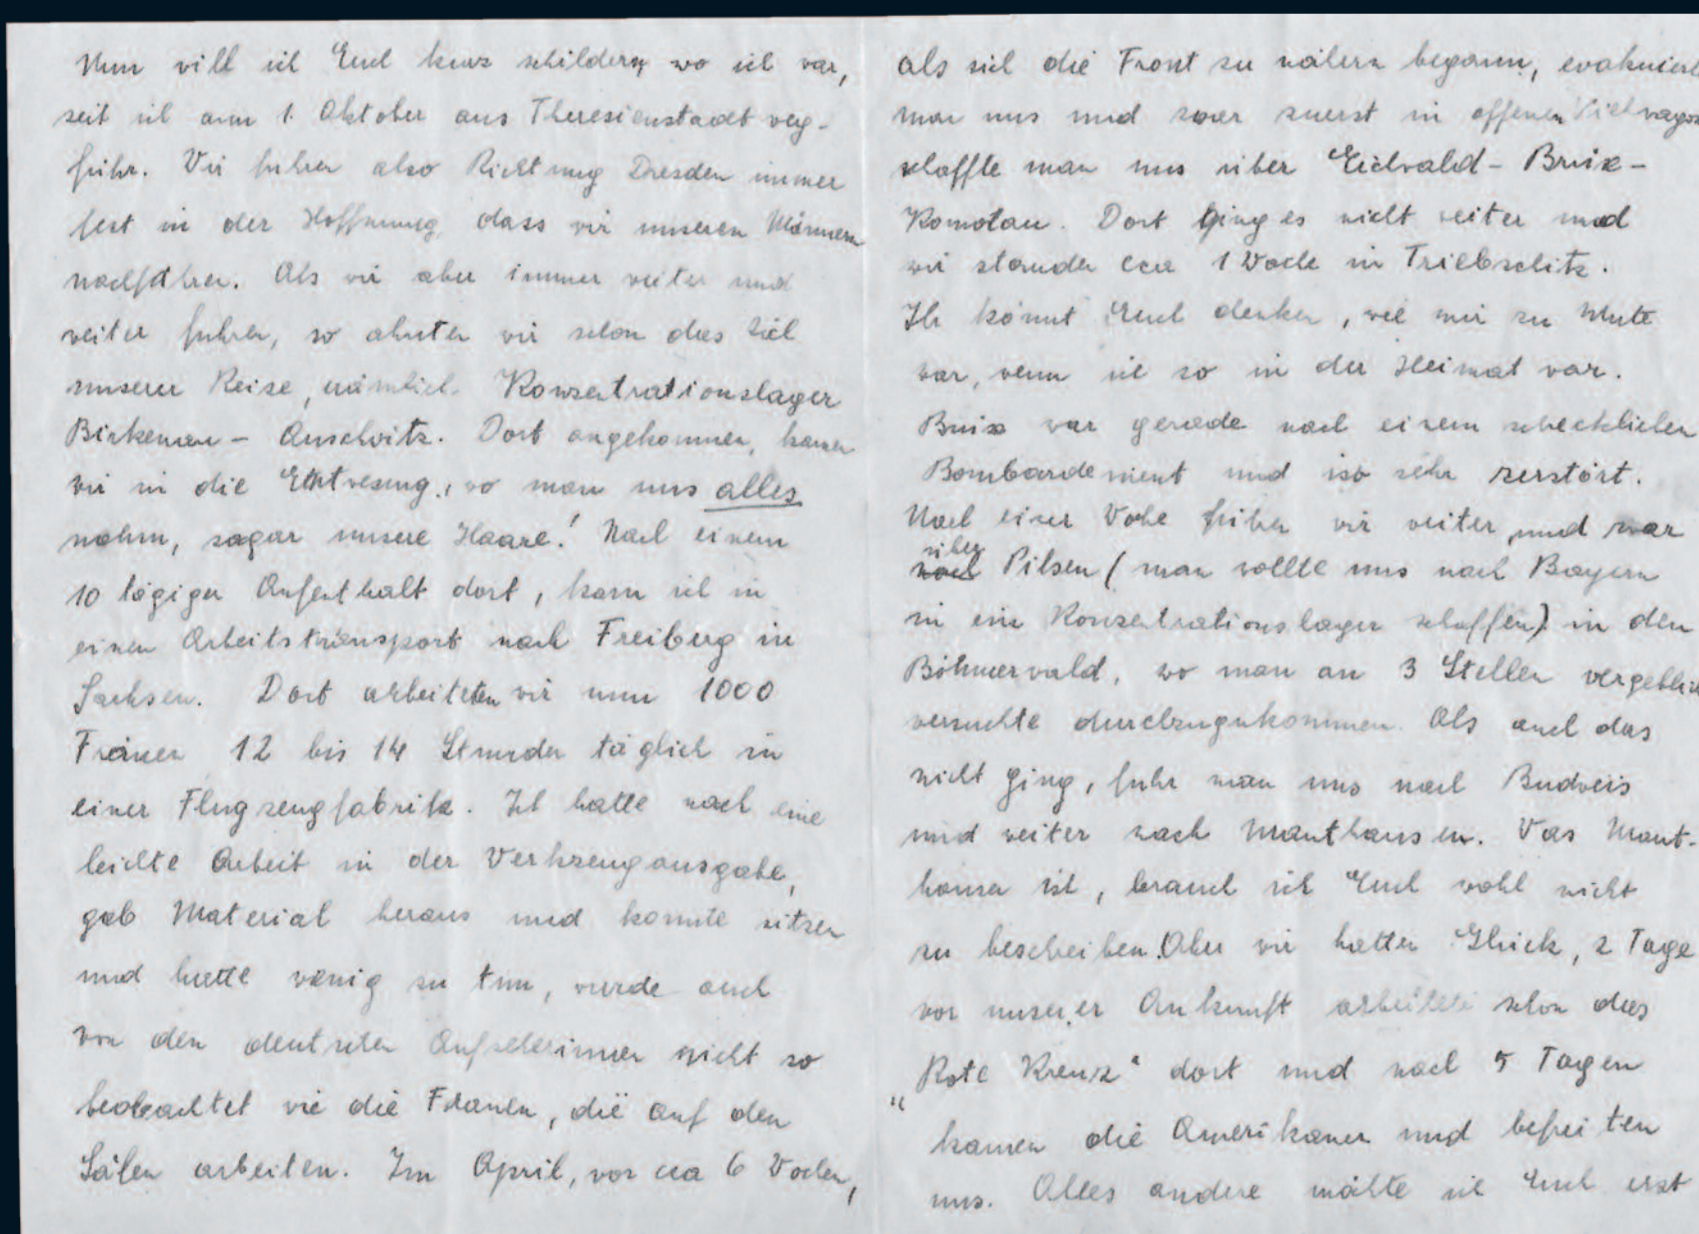 Nun will ich Euch kurz schildern wo ich war,
seit ich am 1. Oktober aus Theresienstadt weg-
fuhr. Wir fuhren also Richtung Dresden immer
fest in der Hoffnung, dass wir unseren Männern
nachfahren. Als wir aber immer weiter und
weiter fuhren, so ahnten wir schon das Ziel
unserer Reise, nämlich Konzentrationslager
Birkenau - Auschwitz. Dort angekommen, kamen
wir in die Entwesung, wo man uns alles
nahm, sogar unsere Haare! Nach einem
10 tägigen Aufenthalt dort, kam ich in
einen Arbeitstransport nach Freiberg in
Sachsen. Dort arbeiteten wir nun 1000
Frauen 12 bis 14 Stunden täglich in
einer Flugzeugfabrik. Ich hatte noch eine
leichte Arbeit in der Werkzeugausgabe,
gab Material heraus und konnte sitzen
und hatte wenig zu tun, wurde auch
von den deutschen Aufseherinnen nicht so
beobachtet wie die Frauen, die auf den
Sälen arbeiten. Im April, vor cca 6 Wochen,
als sich die Front zu nähern begann, evakuiert
man uns und zwar zuerst in offenen Viehwagons
schaffte man uns über Eichwald - Brüx -
Komotau. Dort ging es nicht weiter und
wir standen cca 1 Woche in Triebschitz.
Ihr könnt Euch denken, wie mir zu Mute
war, wenn ich so in der Heimat war.
Brüx war gerade nach einem schecklichen
Bombardement und iso sehr zerstört.
Nach einer Woche fuhren wir weiter, und zwar
über
nach Pilsen (man wollte uns nach Bayern
in ein Konzentrationslager schaffen) in den
Böhmerwald, wo man an 3 Stellen vergeblich
versuchte durchzugukommen. Als auch das
nicht ging, fuhr man uns nach Budweis
und weiter nach Mauthausen. Was Maut-
hausen ist, brauch ich Euch wohl nicht
zu bescheiben. Aber wir hatten Glück, 2 Tage
vor unserer Ankunft arbeitete schon das
"Rote Kreuz" dort und nach 5 Tagen
kamen die Amerikaner und befreiten
uns. Alles andere möchte ich Euch erst